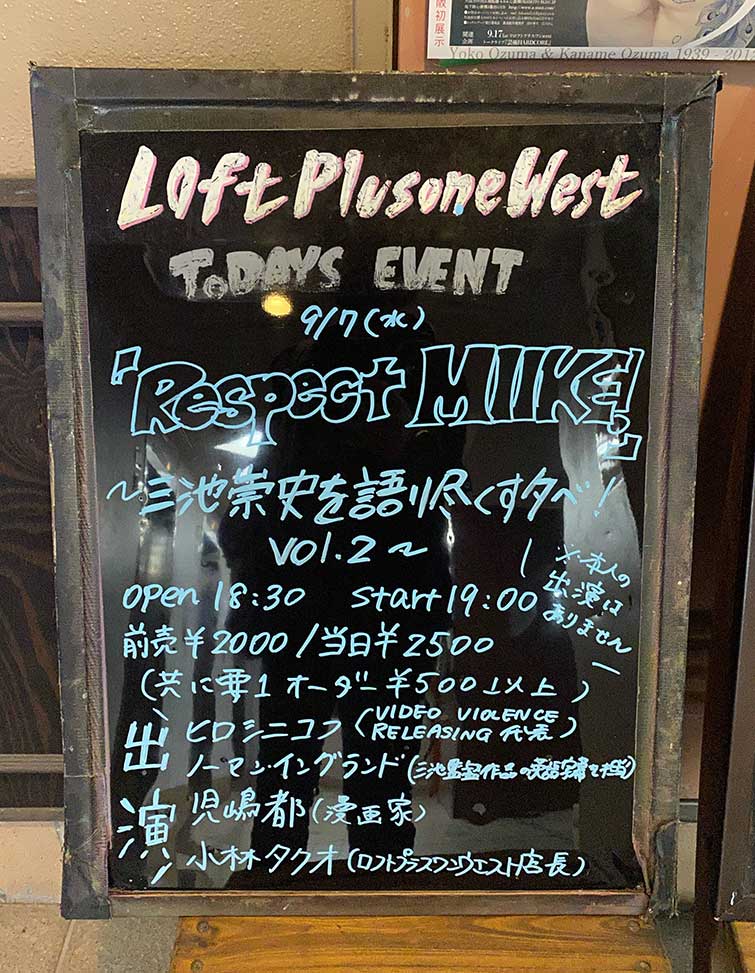 阪初展示
9.17
Yoko Ozuma & Kaname Ozuma 1939 - 201
Loft PlusoneWest
T.DAYS EVENT
9/7(水)
「Respect MIIKE!」
～三池崇史を語り尽くす夕べ!
vol.2～
※本人の
出演は
ありません
open 18:30 start 19:00
前売¥2000/当日¥2500
(共に要1オーダー¥500以上)
出演
ヒロシニコフ(VIDEO VIOLENCE RELEASING 代表)
ノーマン・イングランド(三池監督作品の英語字幕を担当)
児嶋都(漫画家)
小林タクオ(ロフトプラスワンウエスト店長)